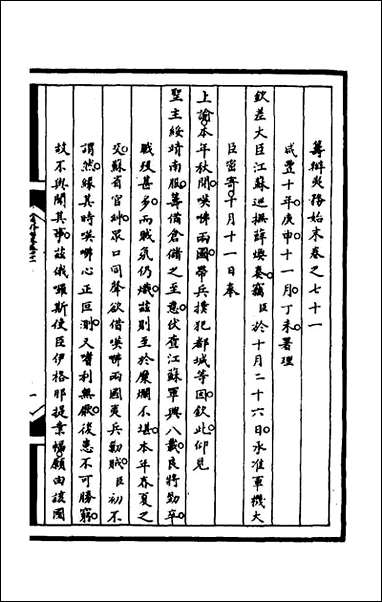 籌辦夷務始末卷之七十一
咸豐十年庚申十一月丁未署理
欽差大臣江蘇巡撫薛煥奏竊臣於十月二十六日承准軍機大
臣密寄十月十一日奉
上諭本年秋間嘆咈兩國帶兵撲犯都城等因欽此仰見
聖主綏靖南服籌備倉儲之至意伏查江蘇軍興八載民將勁卒
賊殁甚多而賊氛仍熾茲則至於糜爛不堪本年春夏之
交蘇省官紳眾口同聲欲借嘆咈兩國夷兵勦賊臣初不
謂然緣其時嘆咈心正叵測又嗜利無厭後患不可勝窮
故不與聞其事茲俄囉斯使臣伊格那提業幅願由該國